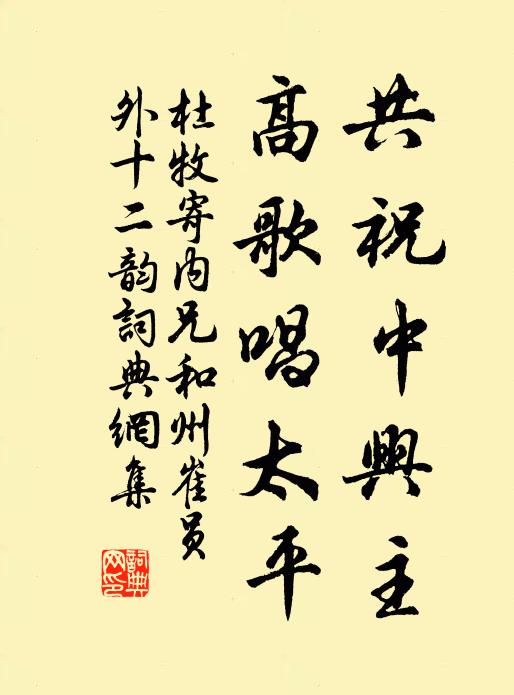 共祝中興主
高歌唱太平
杜牧寄内兄和州崔員
外十二韵詞典網集
詞典網印